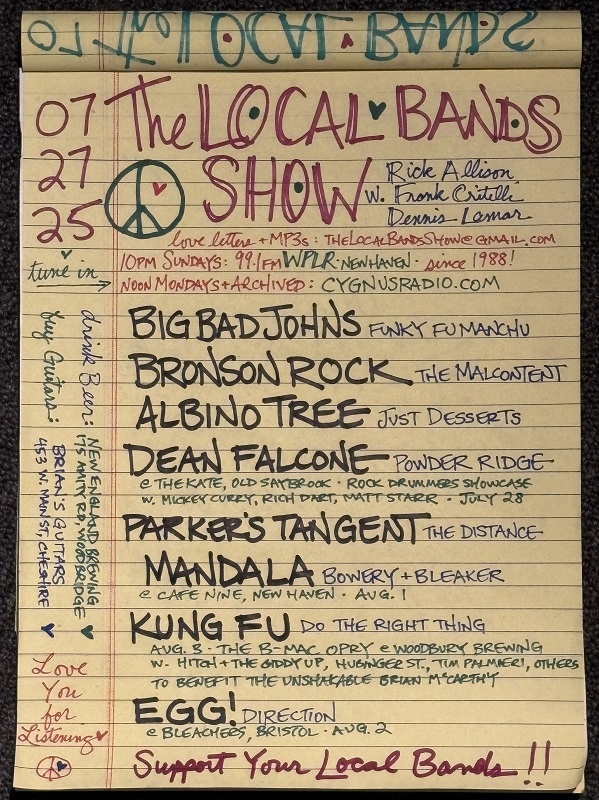 The LOCAL BANDS
07
The LOCAL BANDS
27
SHOW
25
Rick Allison
w. Frank Critelli
Dennis Lemar
love letters + MP3s: THELOCALBANDSSHOW@GMAIL.COM
tune in
10PM SUNDAYS: 99.1FM WPLR · NEW HAVEN · since 1988!
NOON MONDAYS + ARCHIVED: CYGNUSRADIO.COM
BIG BAD JOHNS FUNKY FU MANCHU
BRONSON ROCK THE MALCONTENT
ALBINO TREE JUST DESSERTS
DEAN FALCONE POWDER RIDGE
@ THE KATE, OLD SAYBROOK · ROCK DRUMMERS SHOWCASE
W. MICKEY CURRY, RICH DART, MATT STARR · JULY 28
PARKER'S TANGENT THE DISTANCE
MANDALA BOWERY + BLEAKER
@ CAFE NINE, NEW HAVEN · AUG. 1
KUNG FU DO THE RIGHT THING
AUG. 3 · THE B-MAC OPRY @ WOODBURY BREWING
W. HITCH + THE GIDDY UP, HUBINGER ST., TIM PALMIERI, OTHERS
TO BENEFIT THE UNSHAKABLE BRIAN McCARTHY
EGG! DIRECTION
@ BLEACHERS, BRISTOL · AUG. 2
Support Your Local Bands!!
drink Beer: NEW ENGLAND BREWING
175 AMITY RD, WOODBRIDGE
buy Guitars: BRIAN'S GUITARS
453 W. MAIN ST, CHESHIRE
Love
You
for
Listening